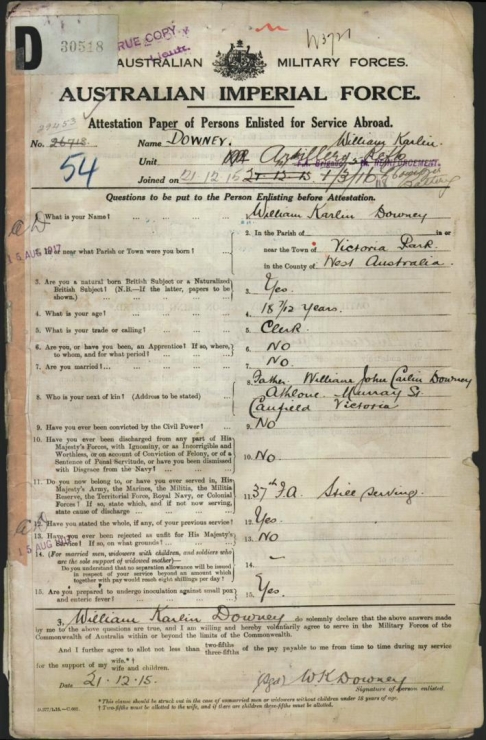 D 30518
TRUE COPY
AUSTRALIAN MILITARY FORCES.
AUSTRALIAN IMPERIAL FORCE.
Attestation Paper of Persons Enlisted for Service Abroad.
No. 54 Name DOWNEY. William Karlin.
Unit Artillery REINFORCEMENT.
Joined on 21 12 15 21-12-15 1/3/16
Questions to be put to the Person Enlisting before Attestation.
1. What is your Name? ... 1. William Karlin Downey
2. In the Parish of in or
5 AUG 1917
In or near what Parish or Town were you born? ... near the Town of Victoria Park.
in the County of West Australia.
3. Are you a natural born British Subject or a Naturalized
British Subject? (N.B.—If the latter, papers to be
shown.) ... 3. Yes.
4. What is your age? ... 4. 18 7/12 Years.
5. What is your trade or calling? ... 5. Clerk.
6. Are you, or have you been, an Apprentice? If so, where,
to whom, and for what period? ... 6. NO
7. Are you married? ... 7. NO.
8. Father. William John Carlin Downey
8. Who is your next of kin? (Address to be stated) ... Athlone Murray St.
Caulfield Victoria
9. Have you ever been convicted by the Civil Power? ... 9. NO
10. Have you ever been discharged from any part of His
Majesty's Forces, with Ignominy, or as Incorrigible and
Worthless, or on account of Conviction of Felony, or of a
Sentence of Penal Servitude, or have you been dismissed
with Disgrace from the Navy? ... 10. NO.
11. Do you now belong to, or have you ever served in, His
Majesty's Army, the Marines, the Militia, the Militia
Reserve, the Territorial Force, Royal Navy, or Colonial
Forces? If so, state which, and if not now serving,
state cause of discharge ... 11. 37th F.A. Still serving.
12. Have you stated the whole, if any, of your previous service? 12. Yes.
13. Have you ever been rejected as unfit for His Majesty's
Service? If so, on what grounds? ... 13. NO
15 AUG 1917
14. (For married men, widowers with children, and soldiers who
are the sole support of widowed mother)—
Do you understand that no separation allowance will be issued
in respect of your service beyond an amount which
together with pay would reach eight shillings per day? 14. –
15. Are you prepared to undergo inoculation against small pox
and enteric fever? ... 15. Yes.
I, William Karlin Downey do solemnly declare that the above answers made
by me to the above questions are true, and I am willing and hereby voluntarily agree to serve in the Military Forces of the
Commonwealth of Australia within or beyond the limits of the Commonwealth.
And I further agree to allot not less than two-fifths three-fifths of the pay payable to me from time to time during my service
for the support of my wife.*† wife and children.
Date 21.12.15. (sgd) WK Downey
Signature of person enlisted.
*This clause should be struck out in the case of unmarried men or widowers without children under 18 years of age.
† Two-fifths must be allotted to the wife, and if there are children three-fifths must be allotted.